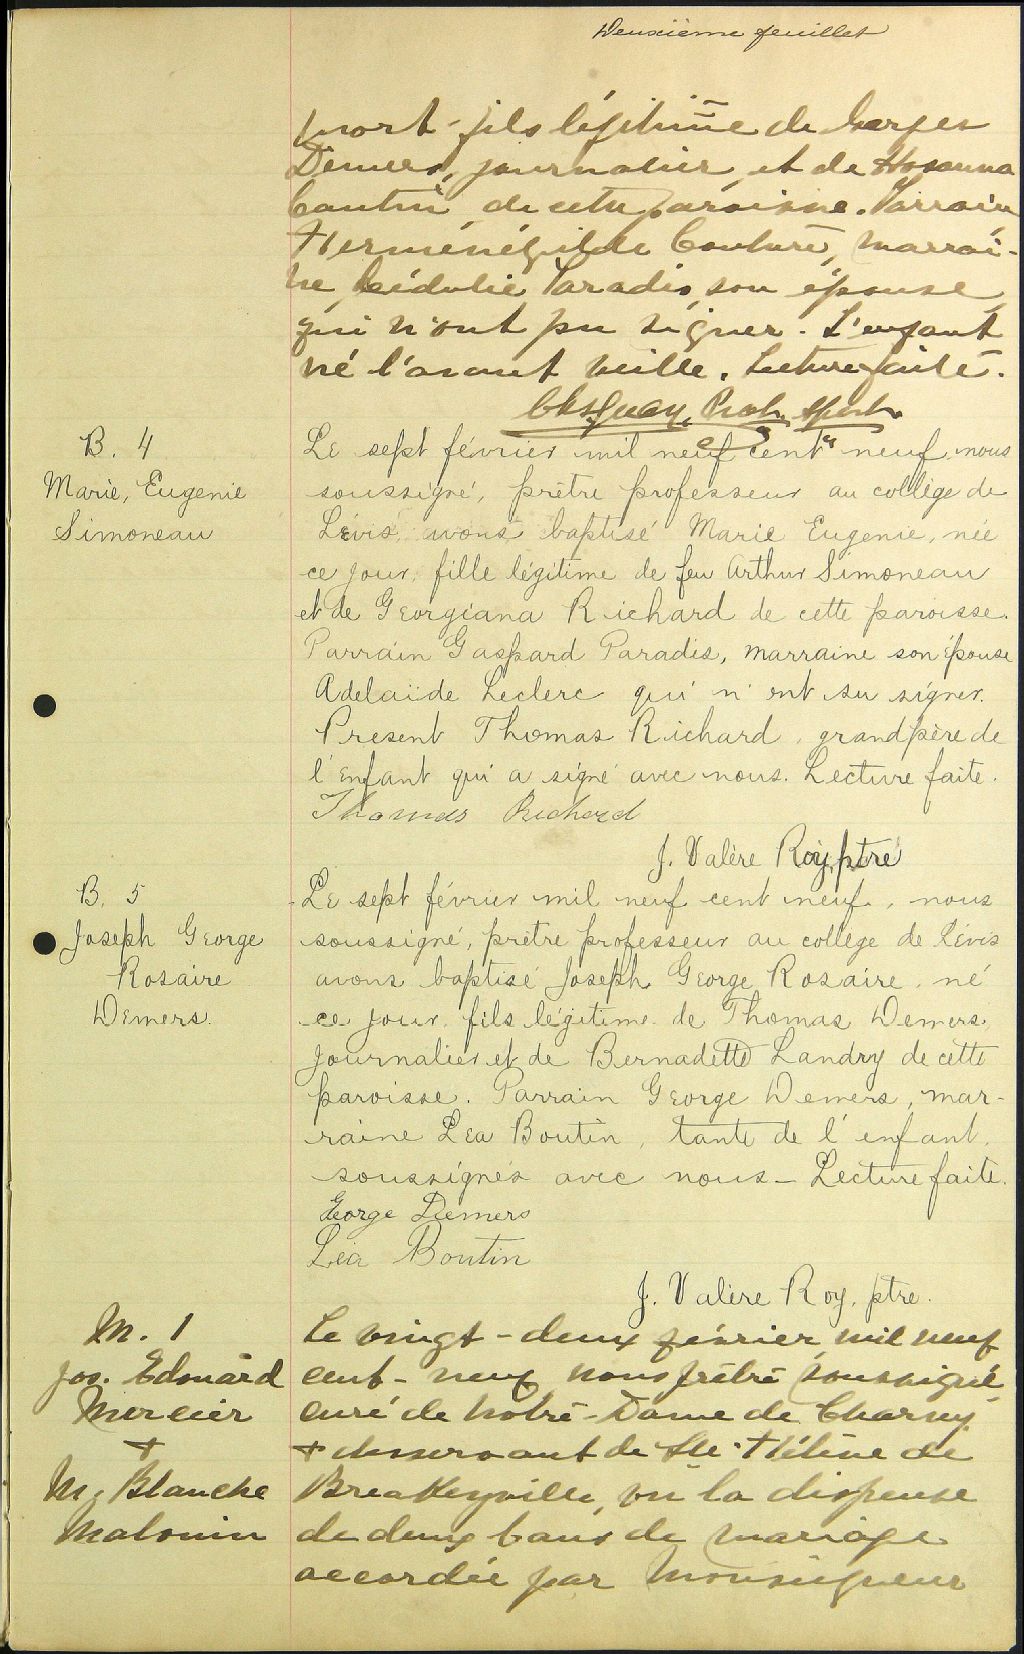 Deuxième feuillet
mort - fils légitime de Georges
Demers, journalier, et de Hosanna
Cantin, de cette paroisse. Parrain
Herménégilde Couture, marrai-
ne Zéidulie Paradis, son épouse
qui n'ont pu signer. L'enfant
né l'avant veille. Lecture faite.
B. 4
Marie, Eugenie
Simoneau
Le sept février mil neuf cent neuf, nous
soussigné, prêtre professeur au collège de
Lévis, avons baptisé Marie Eugenie, née
ce jour, fille légitime de feu Arthur Simoneau
et de Georgiana Richard de cette paroisse.
Parrain Gaspard Paradis, marraine son épouse
Adelaïde Leclerc qui n'ont su signer.
Present Thomas Richard, grand père de
l'enfant qui a signé avec nous. Lecture faite.
Thomas Richard
J. Valère Roy, ptre
B. 5
Joseph George
Rosaire
Demers.
Le sept février mil neuf cent neuf, nous
soussigné, prêtre professeur au collège de Lévis
avons baptisé Joseph George Rosaire, né
ce jour, fils légitime de Thomas Demers,
journalier et de Bernadette Landry de cette
paroisse. Parrain George Demers, mar-
raine Lea Boutin, tante de l'enfant,
soussignés avec nous - Lecture faite.
George Demers
Léa Boutin
J. Valère Roy, ptre.
M. 1
Jos. Edouard
Mercier
+
M. Blanche
Malouin
Le vingt-deux février mil neuf
cent-neuf, nous prêtre soussigné
curé de Notre-Dame de Charny
+ desservant de Ste-Hélène de
Breakeyville, vu la dispense
de deux bans de mariage
accordée par Monseigneur